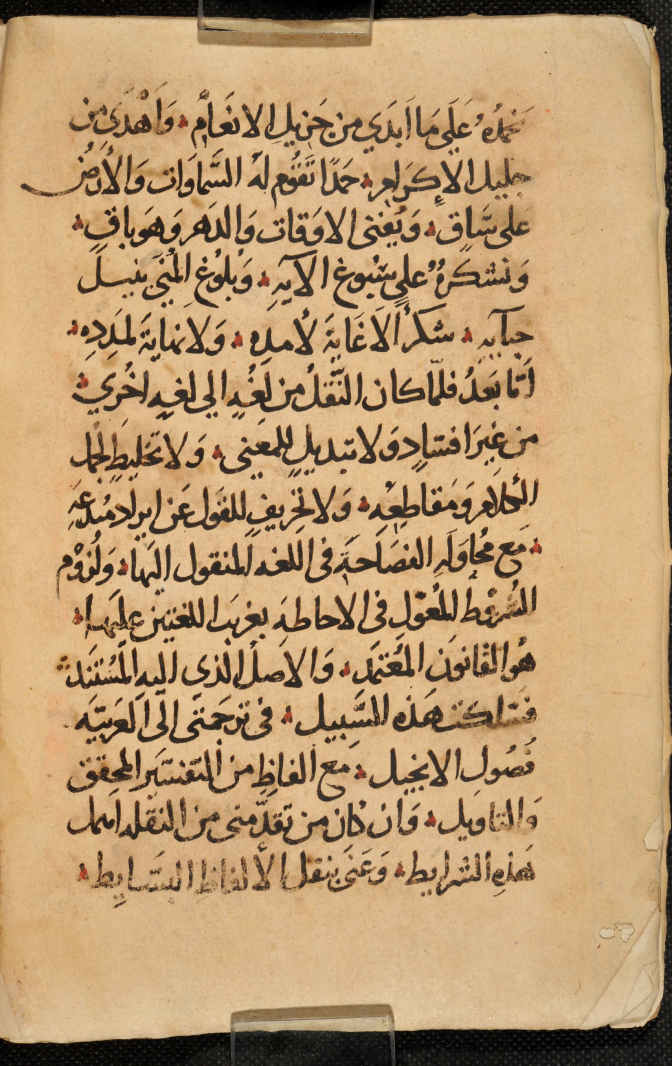 نحمدُه عَلَي مَا اَبدَي من جَزيلِ الانعَامِ ۞ وَاَهْدَي مِن
جليل الاِكرَامِ ۞ حمَدًا تَقُوم لهُ السَّمَاوَات وَالأرضُ
علي سَّاقٍ ۞ وَتفنى الاوقات وَالدَهر وَهوَ باقٍ ۞
وَنشكرُهُ علي سُبُوغ الآيهِ ۞ وَبلُوغ المُنَي بنيلِ
حبآيهِ ۞ شكرًا لَا غَايةَ لأمدِه ۞ وَلا نهايَة لمَدَدِه ۞
اَمّا بَعَدُ فلمّا كان النَّقلُ من لُغَهٍ الي لغهٍ اخُري ۞
من غير افسَادٍ وَلا تبديلٍ للمعَني ۞ وَلا تخليطٍ لجُمل
الكلامِ وَمَقاطِعِه ۞ وَلا تحَريفٍ للقَول عَن ايراد مُبدعَهِ
۞ مَع مُحاوَلهِ الفصَاحَةِ في اللغه المنقول اليهَا ۞ وَلُزوُم
الشُروُط المُعَوّلِ في الاحاطهَ بغريب اللغتين عليهَا ۞
هُو القانوُن المُعتَمَد ۞ وَالاَصلُ الذي اليهِ المُسْتَند ۞
فسَلكت هَذه السَّبيل ۞ في ترجَمتي الَي العَربيَّه
فُصُول الانجيل ۞ مَع الفاظٍ من التَفسَير المحقق
وَالتاويل ۞ وَان كان من تقدَّمني من النقله اهمل
هَذِهِ الشرايط ۞ وَعَني بنقل الألفاظ البسَايط ۞